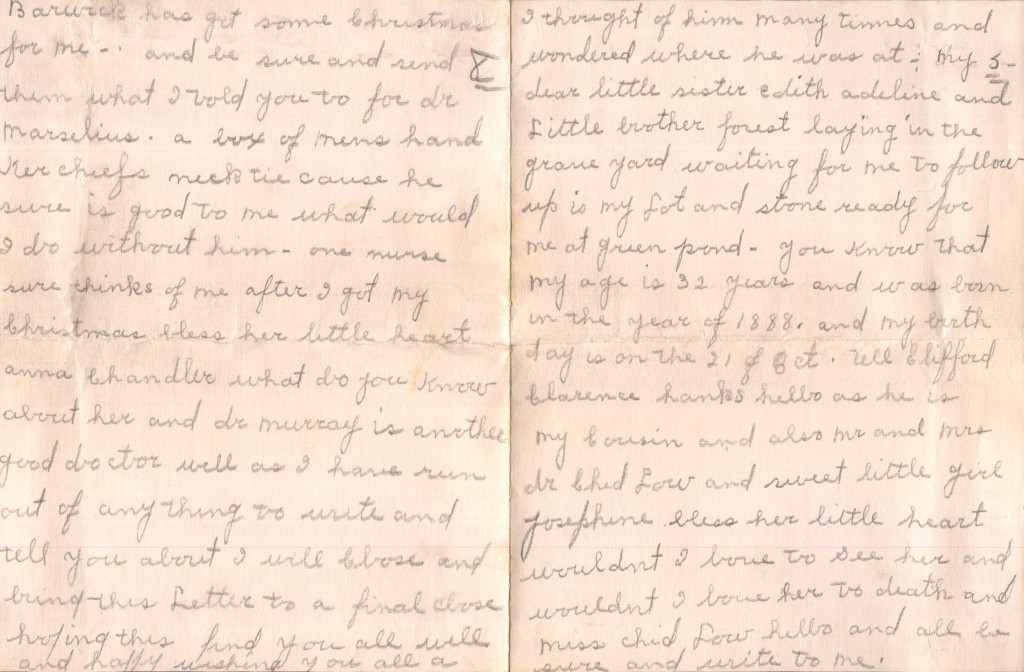 Barwick has got some Christmas
for me - . and be sure and send
them what I told you to for dr
Marselius. a box of mens hand
Ker chiefs neck tie cause he
sure is good to me what would
I do without him - one nurse
sure thinks of me after I got my
Christmas bless her little heart
anna Chandler what do you know
about her and dr murray is another
good doctor well as I have run
out of any thing to write and
tell you about I will Close and
bring this Letter to a final close
hoping this find you all well
and happy wishing you all a
I thought of him many times and
wondered where he was at ; my 5-
dear little sister edith adeline and
Little brother forest laying in the
grave yard waiting for me to follow
up is my Lot and stone ready for
me at green pond - you know that
my age is 32 years and was born
in the year of 1888. and my birth
day is on the 21 of Oct. tell Clifford
Clarence hanks hello as he is
my Cousin and also mr and mrs
dr Chid Low and sweet little girl
Josephine bless her little heart
wouldnt I love to See her and
wouldnt I love her to death and
miss chid Low hello and all be
sure and write to me.